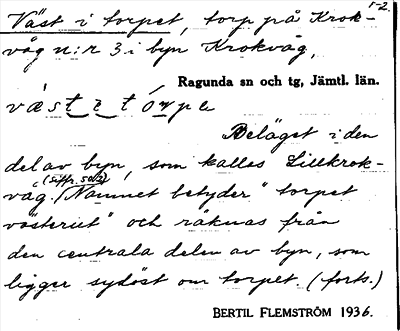 1-2.
Väst i torpet, torp på Krok-
våg n:r 3 i byn Krokvåg,
Ragunda sn och tg, Jämtl. län.
Beläget i den
del av byn, som kallas Lillkrok-
våg. (Siffr. 50/2) Namnet betyder "torpet
västerut" och räknas från
den centrala delen av byn, som
ligger sydöst om torpet. (forts.)
BERTIL FLEMSTRÖM 1936.